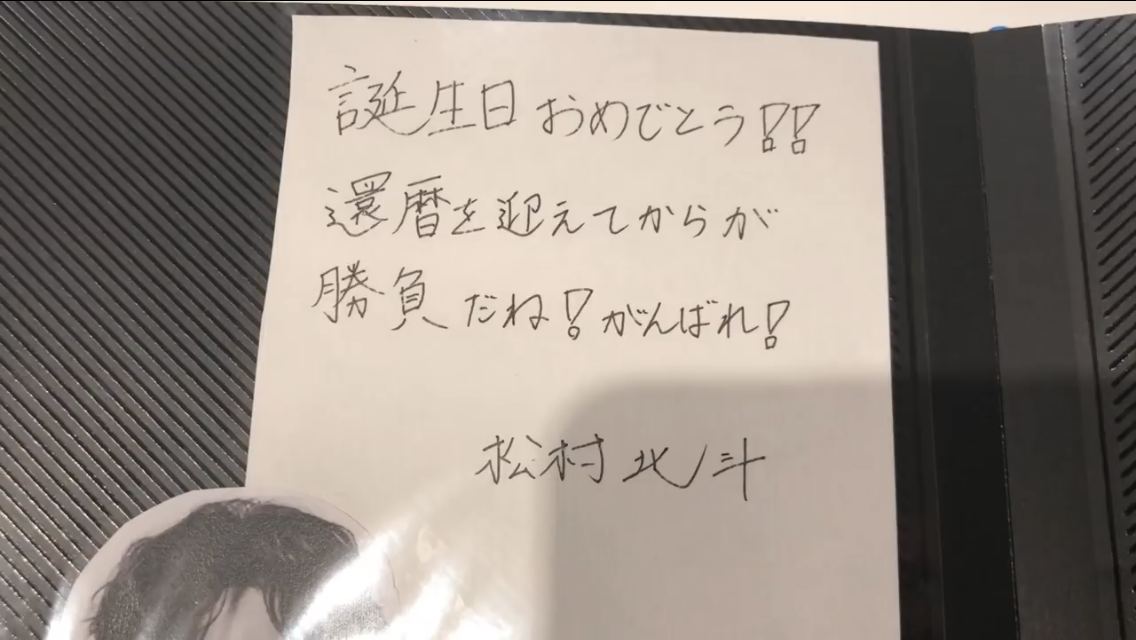 誕生日おめでとう!!
還暦を迎えてからが
勝負だね!がんばれ!
松村北斗